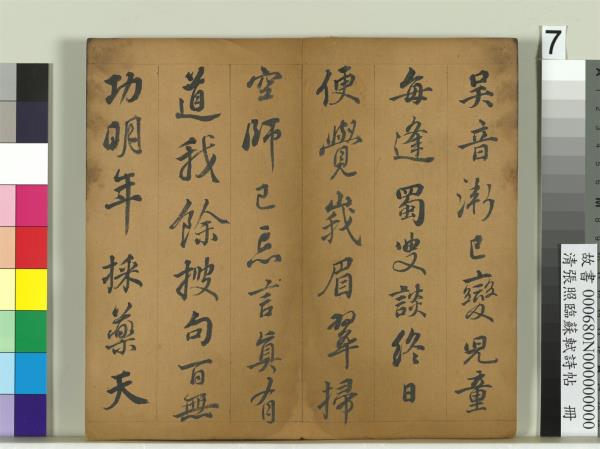 吳音漸已變兒童
每逢蜀叟談終日
便覺峨眉翠掃
空師已忘言真有
道我餘搜句百無
功明年採藥天
7
故書 000680N000000000
清張照臨蘇軾詩帖 冊